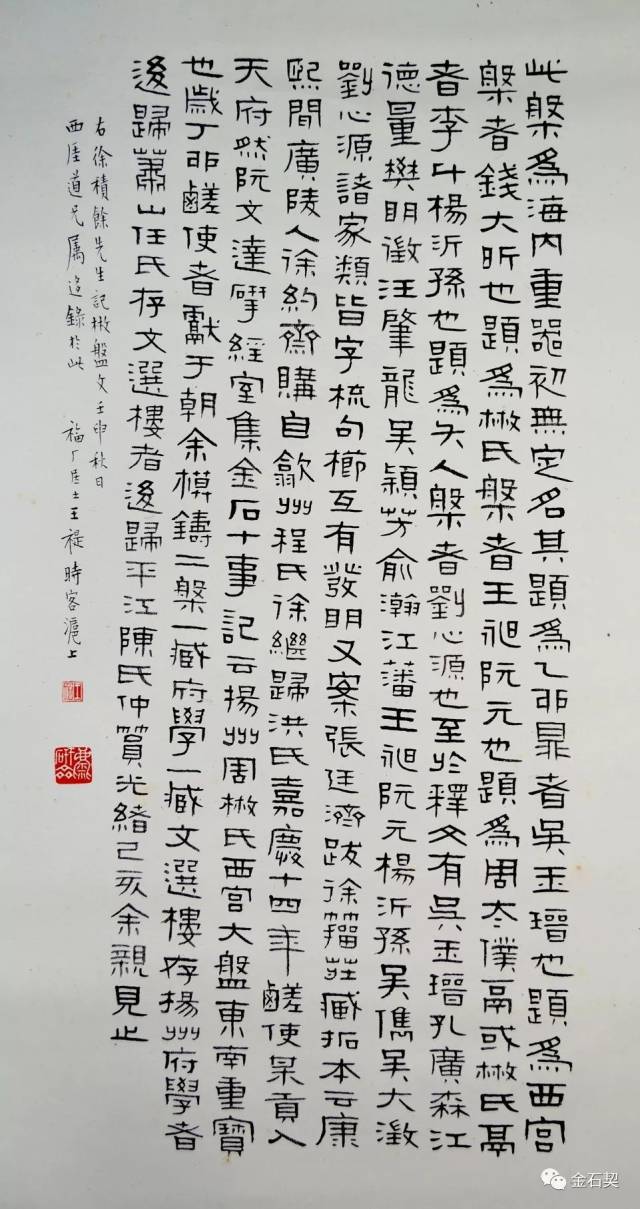 此槃爲海内重器初無定名其題爲乙卯鼎者吳玉瑨也題爲西宮
槃者錢大昕也題爲散氏槃者王昶阮元也題爲周太僕鬲或散氏鬲
者李斗楊沂孫也題爲夨人槃者劉心源也至於釋文有吳玉瑨孔廣森江
德量樊明徵汪肇龍吳穎芳俞瀚江藩王昶阮元楊沂孫吳儁吳大澂
劉心源諸家類皆字梳句櫛互有發明又案張廷濟跋徐籀莊臧拓本云康
熙間廣陵人徐約齋購自歙州程氏徐繼歸洪氏嘉慶十四年鹺使某貢入
天府然阮文達揅經室集金石十事記云揚州周散氏西宮大盤東南重寶
也歲丁卯鹺使者獻于朝余模鑄二槃一臧府學一臧文選樓存揚州府學者
後歸蕭山任氏存文選樓者後歸平江陳氏仲篔光緒己亥余親見之
右徐積餘先生記散盤文壬申秋日
西厓道兄屬迻錄於此 福厂居士王褆時客滬上
金石契